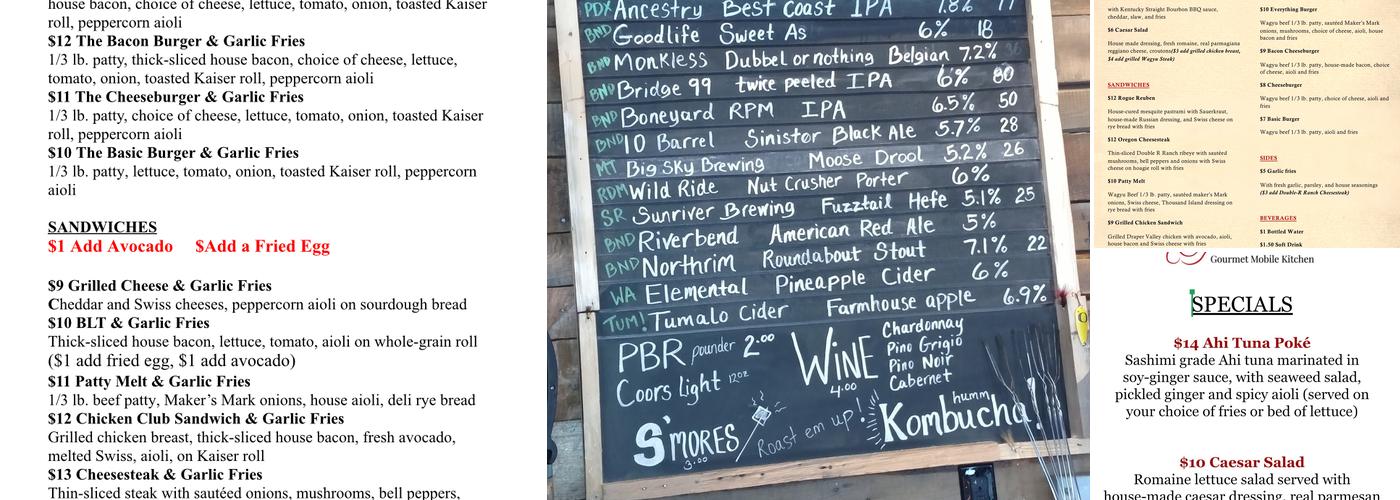 house bacon, choice of cheese, lettuce, tomato, onion, toasted Kaiser
roll, peppercorn aioli
$12 The Bacon Burger & Garlic Fries
1/3 lb. patty, thick-sliced house bacon, choice of cheese, lettuce,
tomato, onion, toasted Kaiser roll, peppercorn aioli
$11 The Cheeseburger & Garlic Fries
1/3 lb. patty, choice of cheese, lettuce, tomato, onion, toasted Kaiser
roll, peppercorn aioli
$10 The Basic Burger & Garlic Fries
1/3 lb. patty, lettuce, tomato, onion, toasted Kaiser roll, peppercorn
aioli
SANDWICHES
$1 Add Avocado $Add a Fried Egg
$9 Grilled Cheese & Garlic Fries
Cheddar and Swiss cheeses, peppercorn aioli on sourdough bread
$10 BLT & Garlic Fries
Thick-sliced house bacon, lettuce, tomato, aioli on whole-grain roll
($1 add fried egg, $1 add avocado)
$11 Patty Melt & Garlic Fries
1/3 lb. beef patty, Maker's Mark onions, house aioli, deli rye bread
$12 Chicken Club Sandwich & Garlic Fries
Grilled chicken breast, thick-sliced house bacon, fresh avocado,
melted Swiss, aioli, on Kaiser roll
$13 Cheesesteak & Garlic Fries
Thin-sliced steak with sautéed onions, mushrooms, bell peppers,
PDX Ancestry Best Coast IPA 7.8% 77
BND Goodlife Sweet As 6% 18
BND Monkless Dubbel or nothing Belgian 7.2% 36
BND Bridge 99 twice peeled IPA 6% 80
BND Boneyard RPM IPA 6.5% 50
BND 10 Barrel Sinistor Black Ale 5.7% 28
MT Big Sky Brewing Moose Drool 5.2% 26
RDM Wild Ride Nut Crusher Porter 6%
SR Sunriver Brewing Fuzztail Hefe 5.1% 25
BND Riverbend American Red Ale 5%
BND Northrim Roundabout Stout 7.1% 22
WA Elemental Pineapple Cider 6%
TUM! Tumalo Cider Farmhouse apple 6.9%
PBR pounder 2.00
Coors Light 12oz
WINE 4.00
Chardonnay
Pino Grigio
Pino Noir
Cabernet
S'MORES 3.00
Roast em up!
humm
Kombucha!
with Kentucky Straight Bourbon BBQ sauce,
cheddar, slaw, and fries
$6 Caesar Salad
House made dressing, fresh romaine, real parmagiana
reggiano cheese, croutons($3 add grilled chicken breast,
$4 add grilled Wagyu Steak)
SANDWICHES
$12 Rogue Reuben
House-cured mesquite pastrami with Sauerkraut,
house-made Russian dressing, and Swiss cheese on
rye bread with fries
$12 Oregon Cheesesteak
Thin-sliced Double R Ranch ribeye with sautéed
mushrooms, bell peppers and onions with Swiss
cheese on hoagie roll with fries
$10 Patty Melt
Wagyu Beef 1/3 lb. patty, sautéed maker's Mark
onions, Swiss cheese, Thousand Island dressing on
rye bread with fries
$9 Grilled Chicken Sandwich
Grilled Draper Valley chicken with avocado, aioli,
house bacon and Swiss cheese with fries
$10 Everything Burger
Wagyu beef 1/3 lb. patty, sautéed Maker's Mark
onions, mushrooms, choice of cheese, aioli, house
bacon and fries
$9 Bacon Cheeseburger
Wagyu beef 1/3 lb. patty, house-made bacon, choice
of cheese, aioli and fries
$8 Cheeseburger
Wagyu beef 1/3 lb. patty, choice of cheese, aioli and
fries
$7 Basic Burger
Wagyu beef 1/3 lb. patty, aioli and fries
SIDES
$5 Garlic fries
With fresh garlic, parsley, and house seasonings
($3 add Double-R Ranch Cheesesteak)
BEVERAGES
$1 Bottled Water
$1.50 Soft Drink
Gourmet Mobile Kitchen
SPECIALS
$14 Ahi Tuna Poké
Sashimi grade Ahi tuna marinated in
soy-ginger sauce, with seaweed salad,
pickled ginger and spicy aioli (served on
your choice of fries or bed of lettuce)
$10 Caesar Salad
Romaine lettuce salad served with
house-made caesar dressing, real parmesan